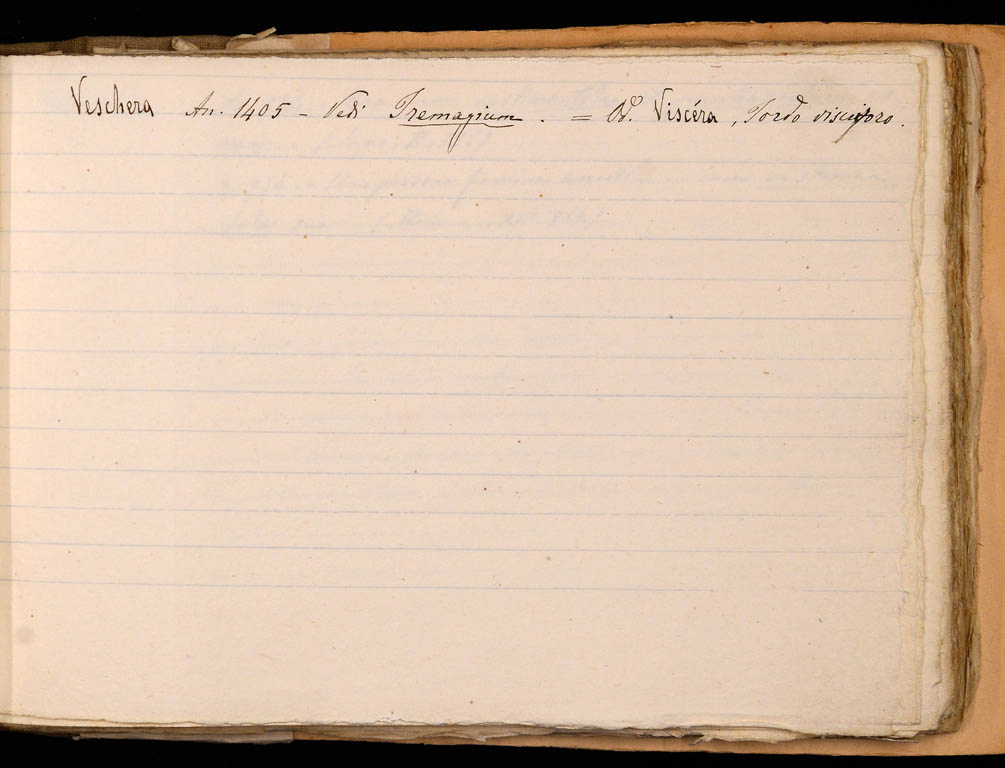 Veschera An. 1405 - Vedi Tremagium. = Od. Viscéra, Tordo viscivoro.